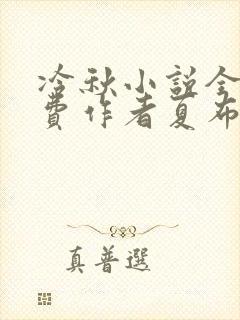 冷秋小説全
費作者夏布
真普選